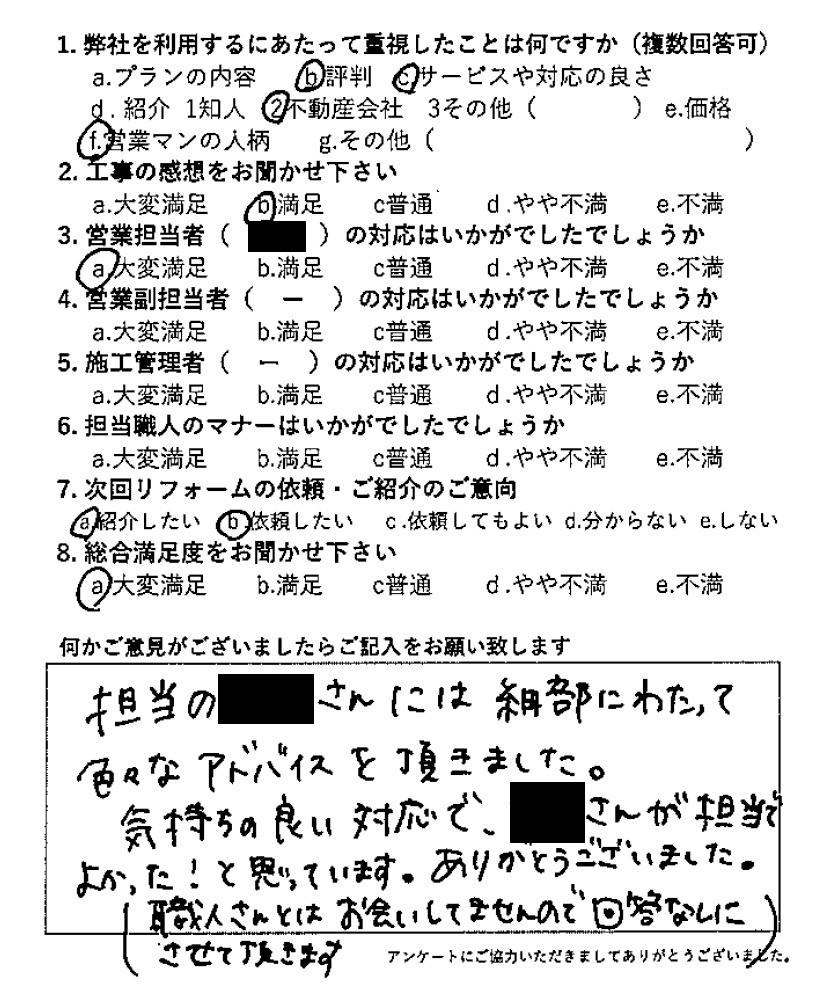 1. 弊社を利用するにあたって重視したことは何ですか（複数回答可）
a.プランの内容 b評判 cサービスや対応の良さ
d. 紹介 1知人 2不動産会社 3その他（ ） e.価格
f.営業マンの人柄 g.その他（ ）
2. 工事の感想をお聞かせ下さい
a.大変満足 b.満足 c普通 d.やや不満 e.不満
3. 営業担当者（ ）の対応はいかがでしたでしょうか
a.大変満足 b.満足 c普通 d.やや不満 e.不満
4. 営業副担当者（ ー ）の対応はいかがでしたでしょうか
a.大変満足 b.満足 c普通 d.やや不満 e.不満
5. 施工管理者（ ー ）の対応はいかがでしたでしょうか
a.大変満足 b.満足 c普通 d.やや不満 e.不満
6. 担当職人のマナーはいかがでしたでしょうか
a.大変満足 b.満足 c普通 d.やや不満 e.不満
7. 次回リフォームの依頼・ご紹介のご意向
a紹介したい b依頼したい c.依頼してもよい d.分からない e.しない
8. 総合満足度をお聞かせ下さい
a.大変満足 b.満足 c普通 d.やや不満 e.不満
何かご意見がございましたらご記入をお願い致します
担当の さんには 細部にわたって
色々な アドバイスを頂きました。
気持ちの良い対応で、 さんが担当で
よかった！と思っています。ありがとうございました。
（職人さんとは お会いしてませんので 回答なしに
させて頂きます）
アンケートにご協力いただきましてありがとうございました。